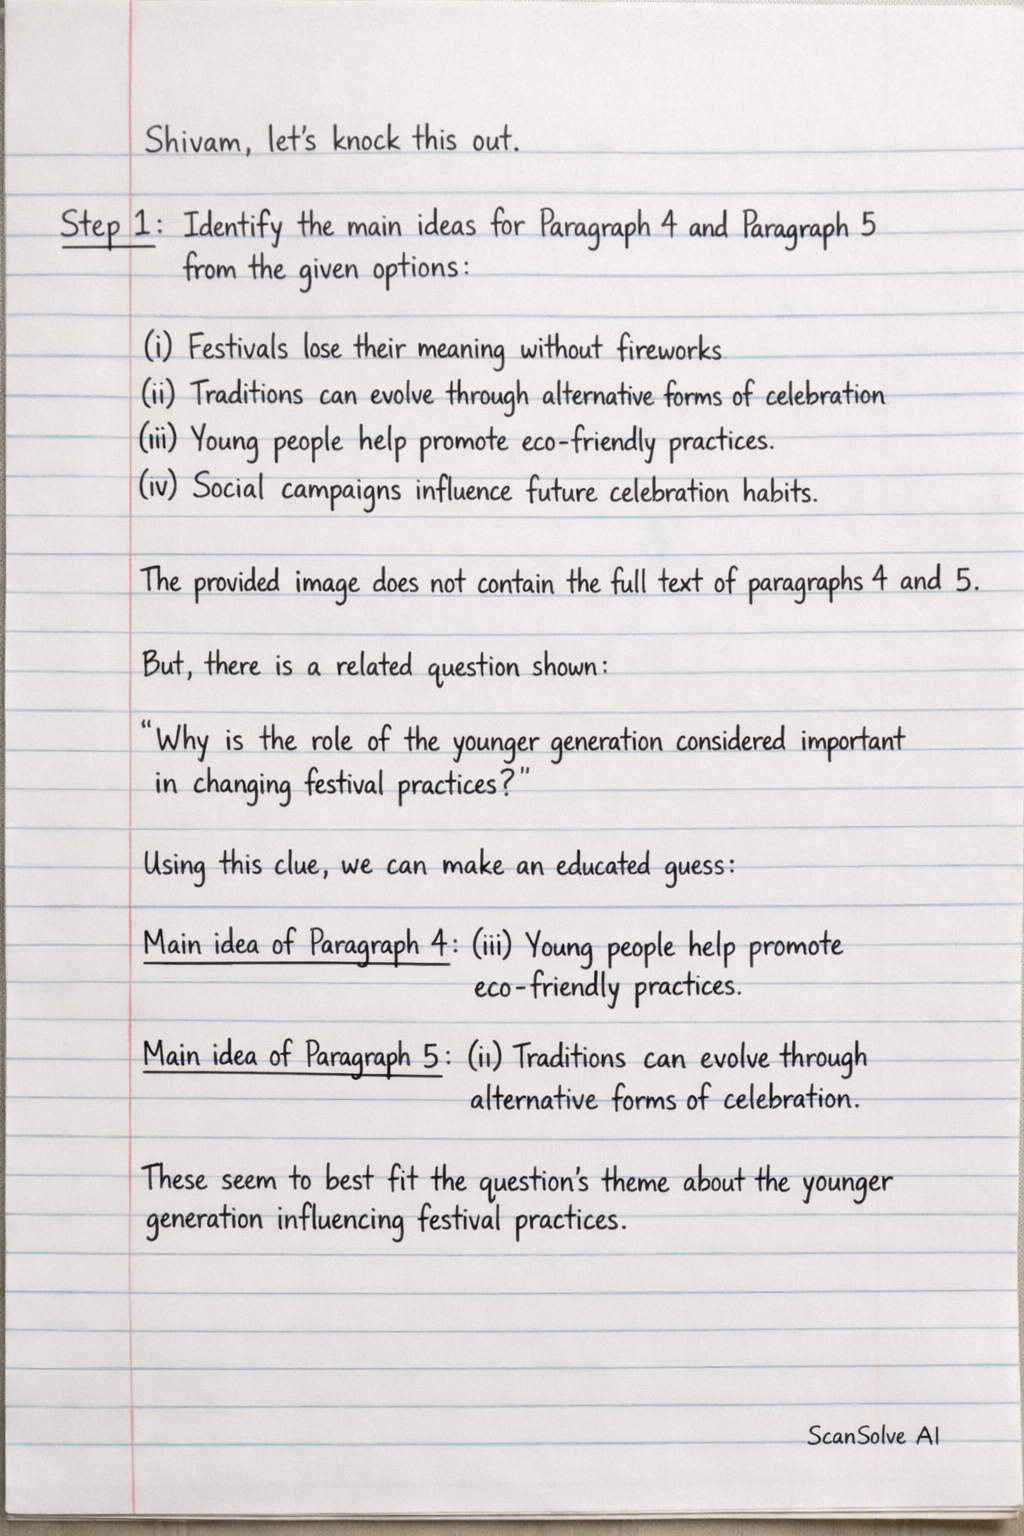 Shivam, let's knock this out.
Step 1: Identify the main ideas for Paragraph 4 and Paragraph 5
from the given options:
(i) Festivals lose their meaning without fireworks
(ii) Traditions can evolve through alternative forms of celebration
(iii) Young people help promote eco-friendly practices.
(iv) Social campaigns influence future celebration habits.
The provided image does not contain the full text of paragraphs 4 and 5.
But, there is a related question shown:
"Why is the role of the younger generation considered important
in changing festival practices?"
Using this clue, we can make an educated guess:
Main idea of Paragraph 4: (iii) Young people help promote
eco-friendly practices.
Main idea of Paragraph 5: (ii) Traditions can evolve through
alternative forms of celebration.
These seem to best fit the question's theme about the younger
generation influencing festival practices.
ScanSolve AI